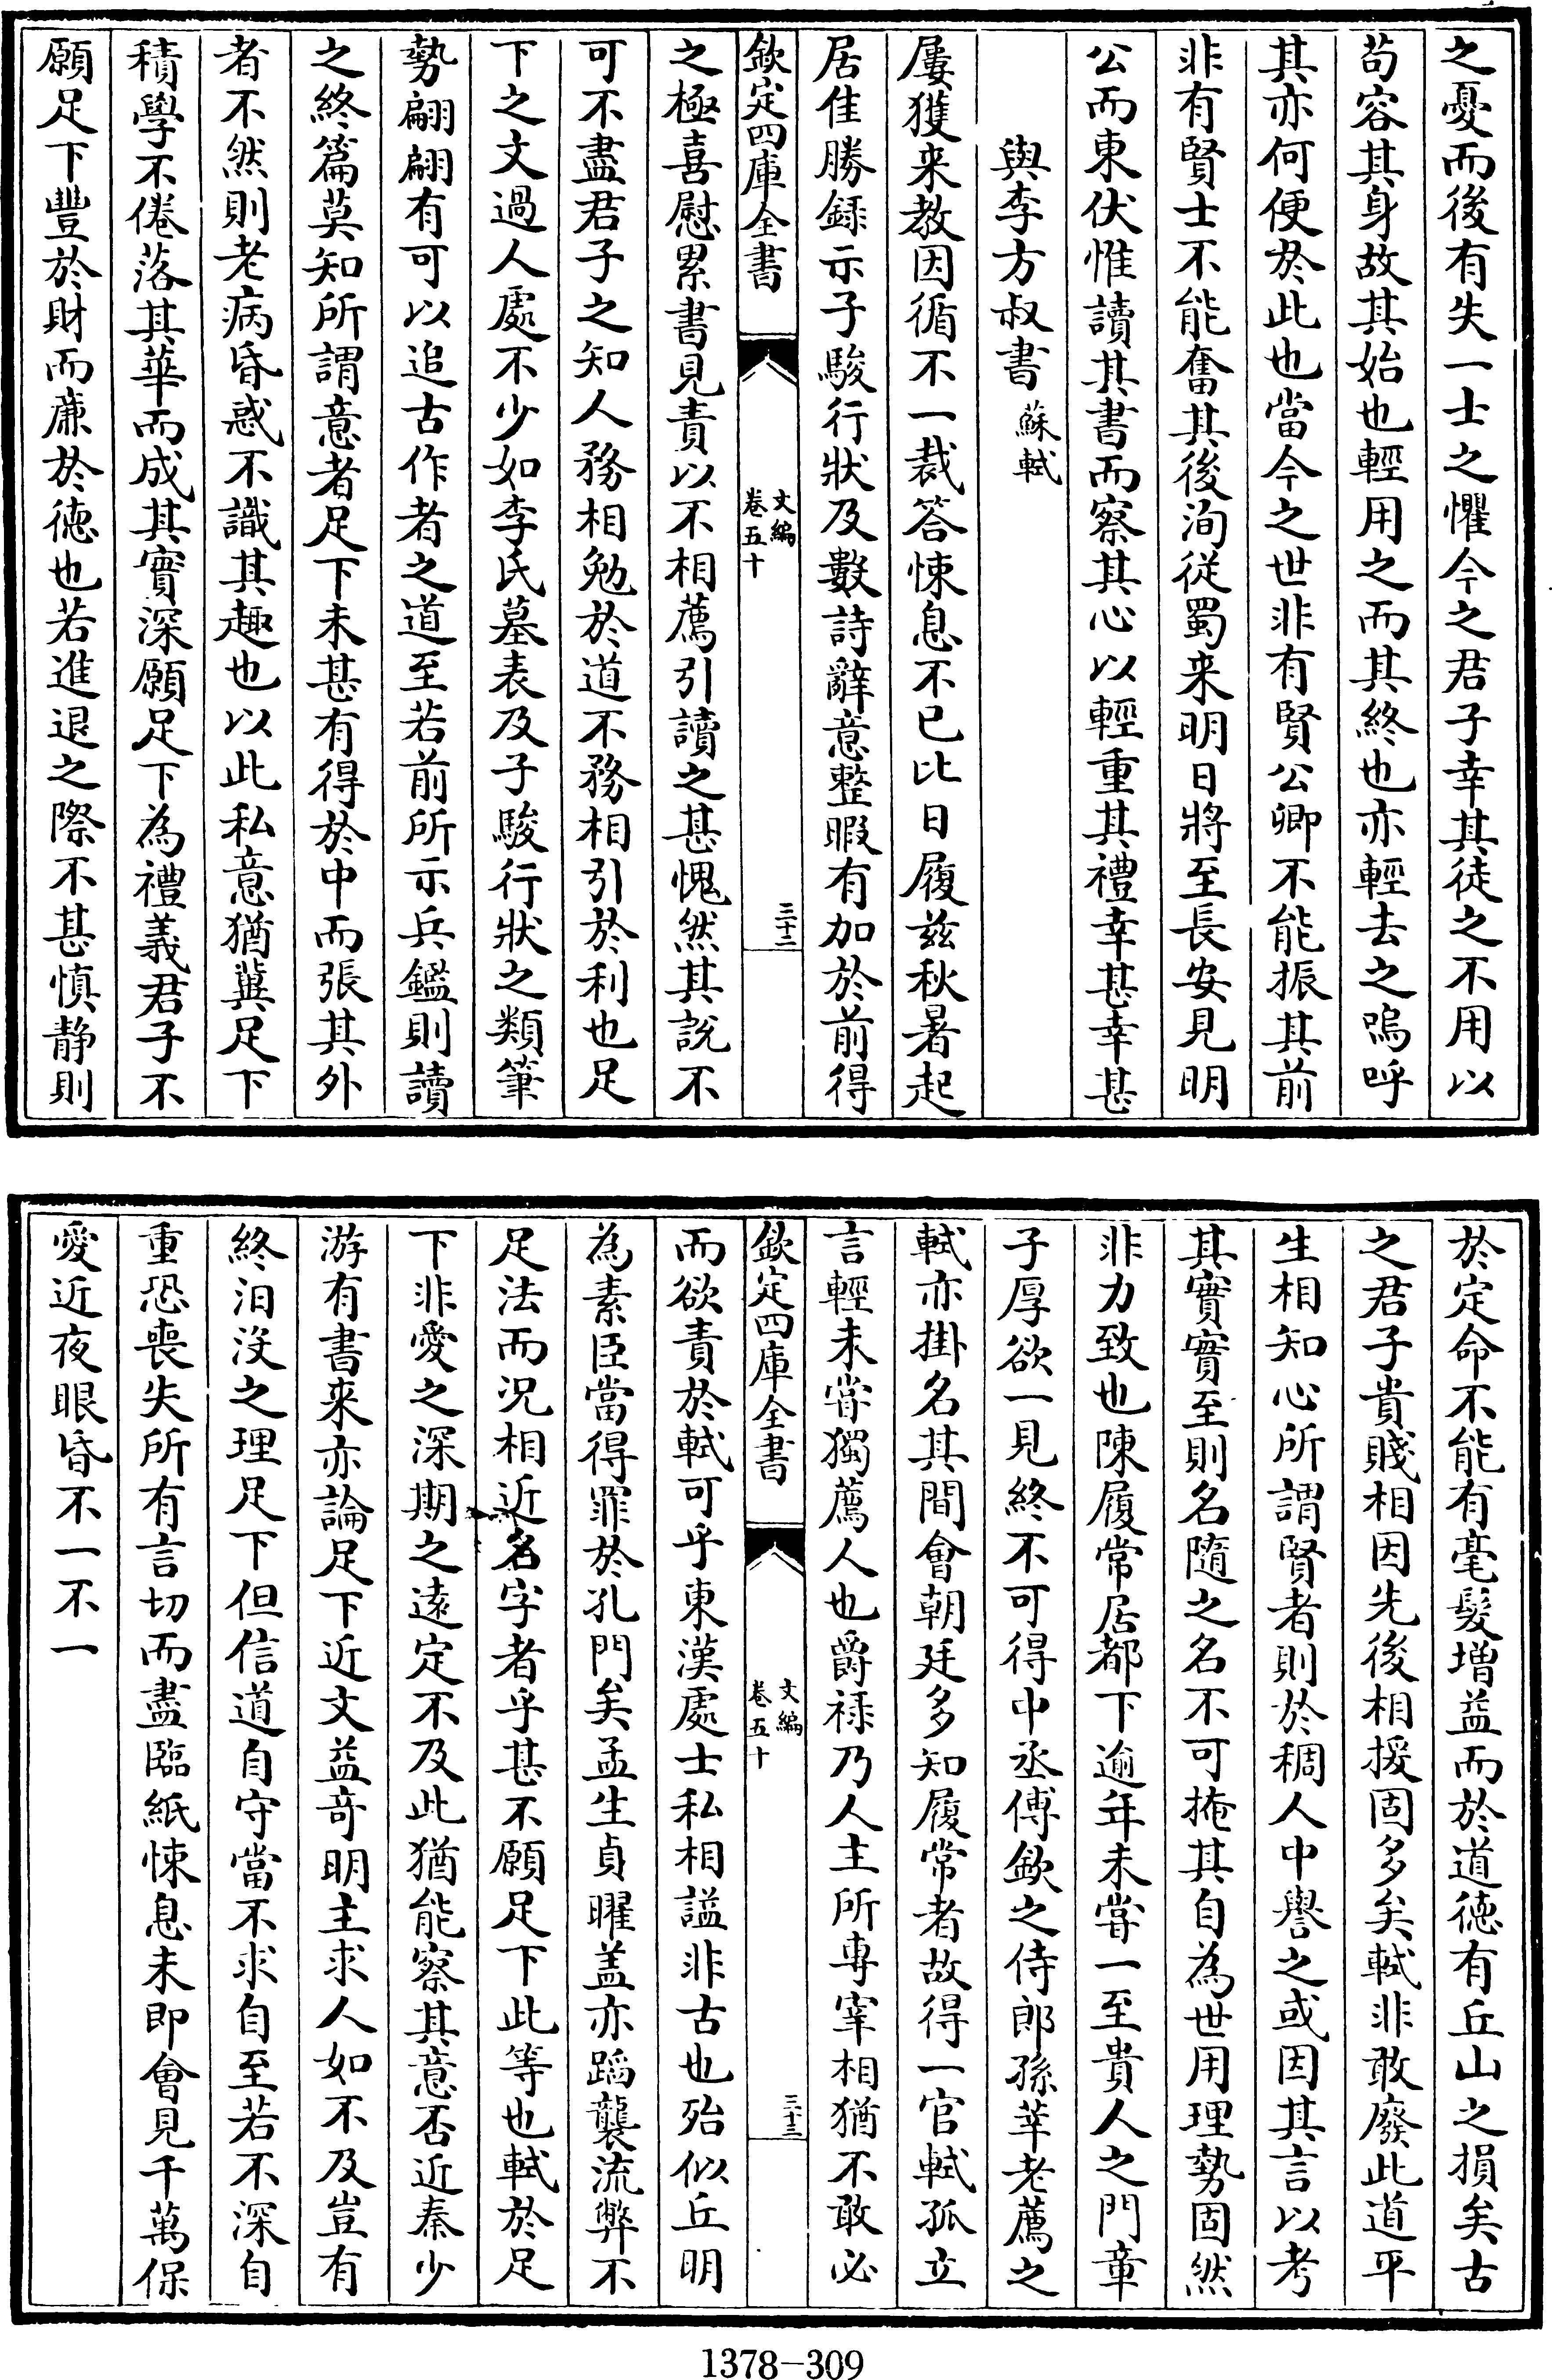 之憂而後有失一士之懼今之君子幸其徒之不用以
苟容其身故其始也輕用之而其終也亦輕去之嗚呼
其亦何便於此也當今之世非有賢公卿不能振其前
非有賢士不能奮其後洵從蜀来明日將至長安見明
公而東伏惟讀其書而察其心以輕重其禮幸甚幸甚
與李方叔書 蘇軾
屢獲来教因循不一裁答悚息不已比日履兹秋暑起
居佳勝錄示子駿行狀及數詩辭意整暇有加於前得
欽定四庫全書 文編 卷五十 三十二
之極喜慰累書見責以不相薦引讀之甚愧然其說不
可不盡君子之知人務相勉於道不務相引於利也足
下之文過人處不少如李氏墓表及子駿行狀之類筆
勢翩翩有可以追古作者之道至若前所示兵鑑則讀
之終篇莫知所謂意者足下未甚有得於中而張其外
者不然則老病昏惑不識其趣也以此私意猶冀足下
積學不倦落其華而成其實深願足下為禮義君子不
願足下豐於財而亷於徳也若進退之際不甚慎静則
於定命不能有毫髮增益而於道徳有丘山之損矣古
之君子貴賤相因先後相援固多矣軾非敢廢此道平
生相知心所謂賢者則於稠人中譽之或因其言以考
其實實至則名隨之名不可掩其自為世用理勢固然
非力致也陳履常居都下逾年未嘗一至貴人之門章
子厚欲一見終不可得中丞傅欽之侍郎孫莘老薦之
軾亦掛名其間會朝廷多知履常者故得一官軾孤立
言輕未嘗獨薦人也爵禄乃人主所専宰相猶不敢必
欽定四庫全書 文編 卷五十 三十三
而欲責於軾可乎東漢處士私相謚非古也殆似丘明
為素臣當得罪於孔門矣孟生貞曜盖亦蹈襲流弊不
足法而况相近名字者乎甚不願足下此等也軾於足
下非愛之深期之逺定不及此猶能察其意否近秦少
游有書来亦論足下近文益竒明主求人如不及豈有
終汨沒之理足下但信道自守當不求自至若不深自
重恐喪失所有言切而盡臨紙悚息未即會見千萬保
愛近夜眼昏不一不一
1378-309